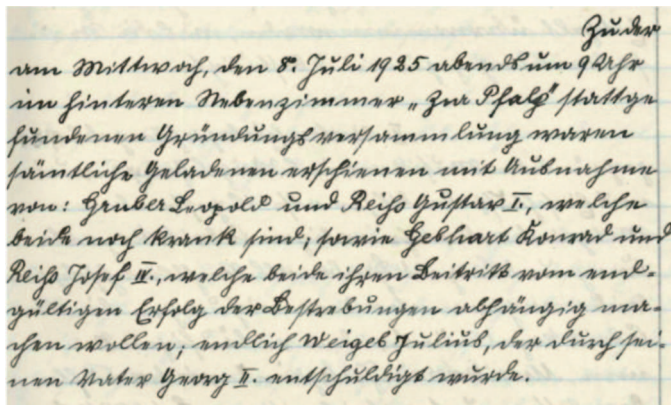 Zu der
am Mittwoch, den 8. Juli 1925 abends um 9 Uhr
im hinteren Nebenzimmer „Zur Pfalz" stattge
fundenen Gründungsversammlung waren
sämtliche Geladenen erschienen mit Ausnahme
von: Gruber Leopold und Reiß Gustav I., welche
beide noch krank sind; sowie Gebhart Konrad und
Reiß Josef IV., welche beide ihren Beitritt vom end-
gültigen Erfolg der Bestrebungen abhängig ma-
chen wollen; endlich Weigel Julius, der durch sei-
nen Vater Georg II. entschuldigt wurde.